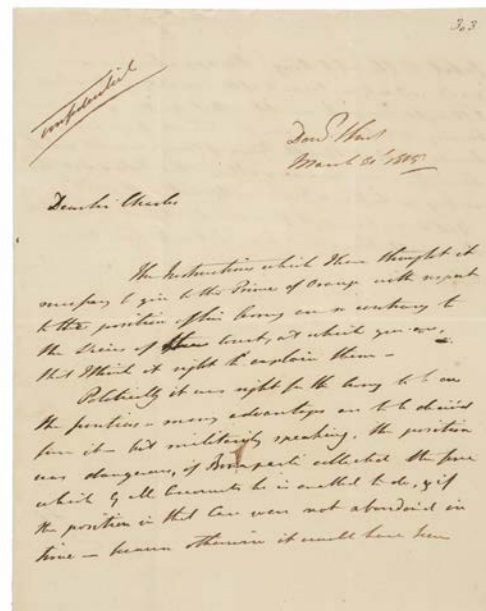 303
Confidential
March 31st 1815
Dear Sir Charles
The Instructions which I have thought it
necessary to give to the Prince of Orange with respect
to the position of his Army are so contrary to
the views of the Court, at which you are,
that I think it right to explain them –
Politically it was right for the Army to be on
the frontier – many advantages are to be derived
from it – but militarily speaking, the position
was dangerous, if Bonaparte collected the force
which by all Accounts he is enabled to do, & if
the position in that Case were not abandoned in
time – because otherwise it would have been